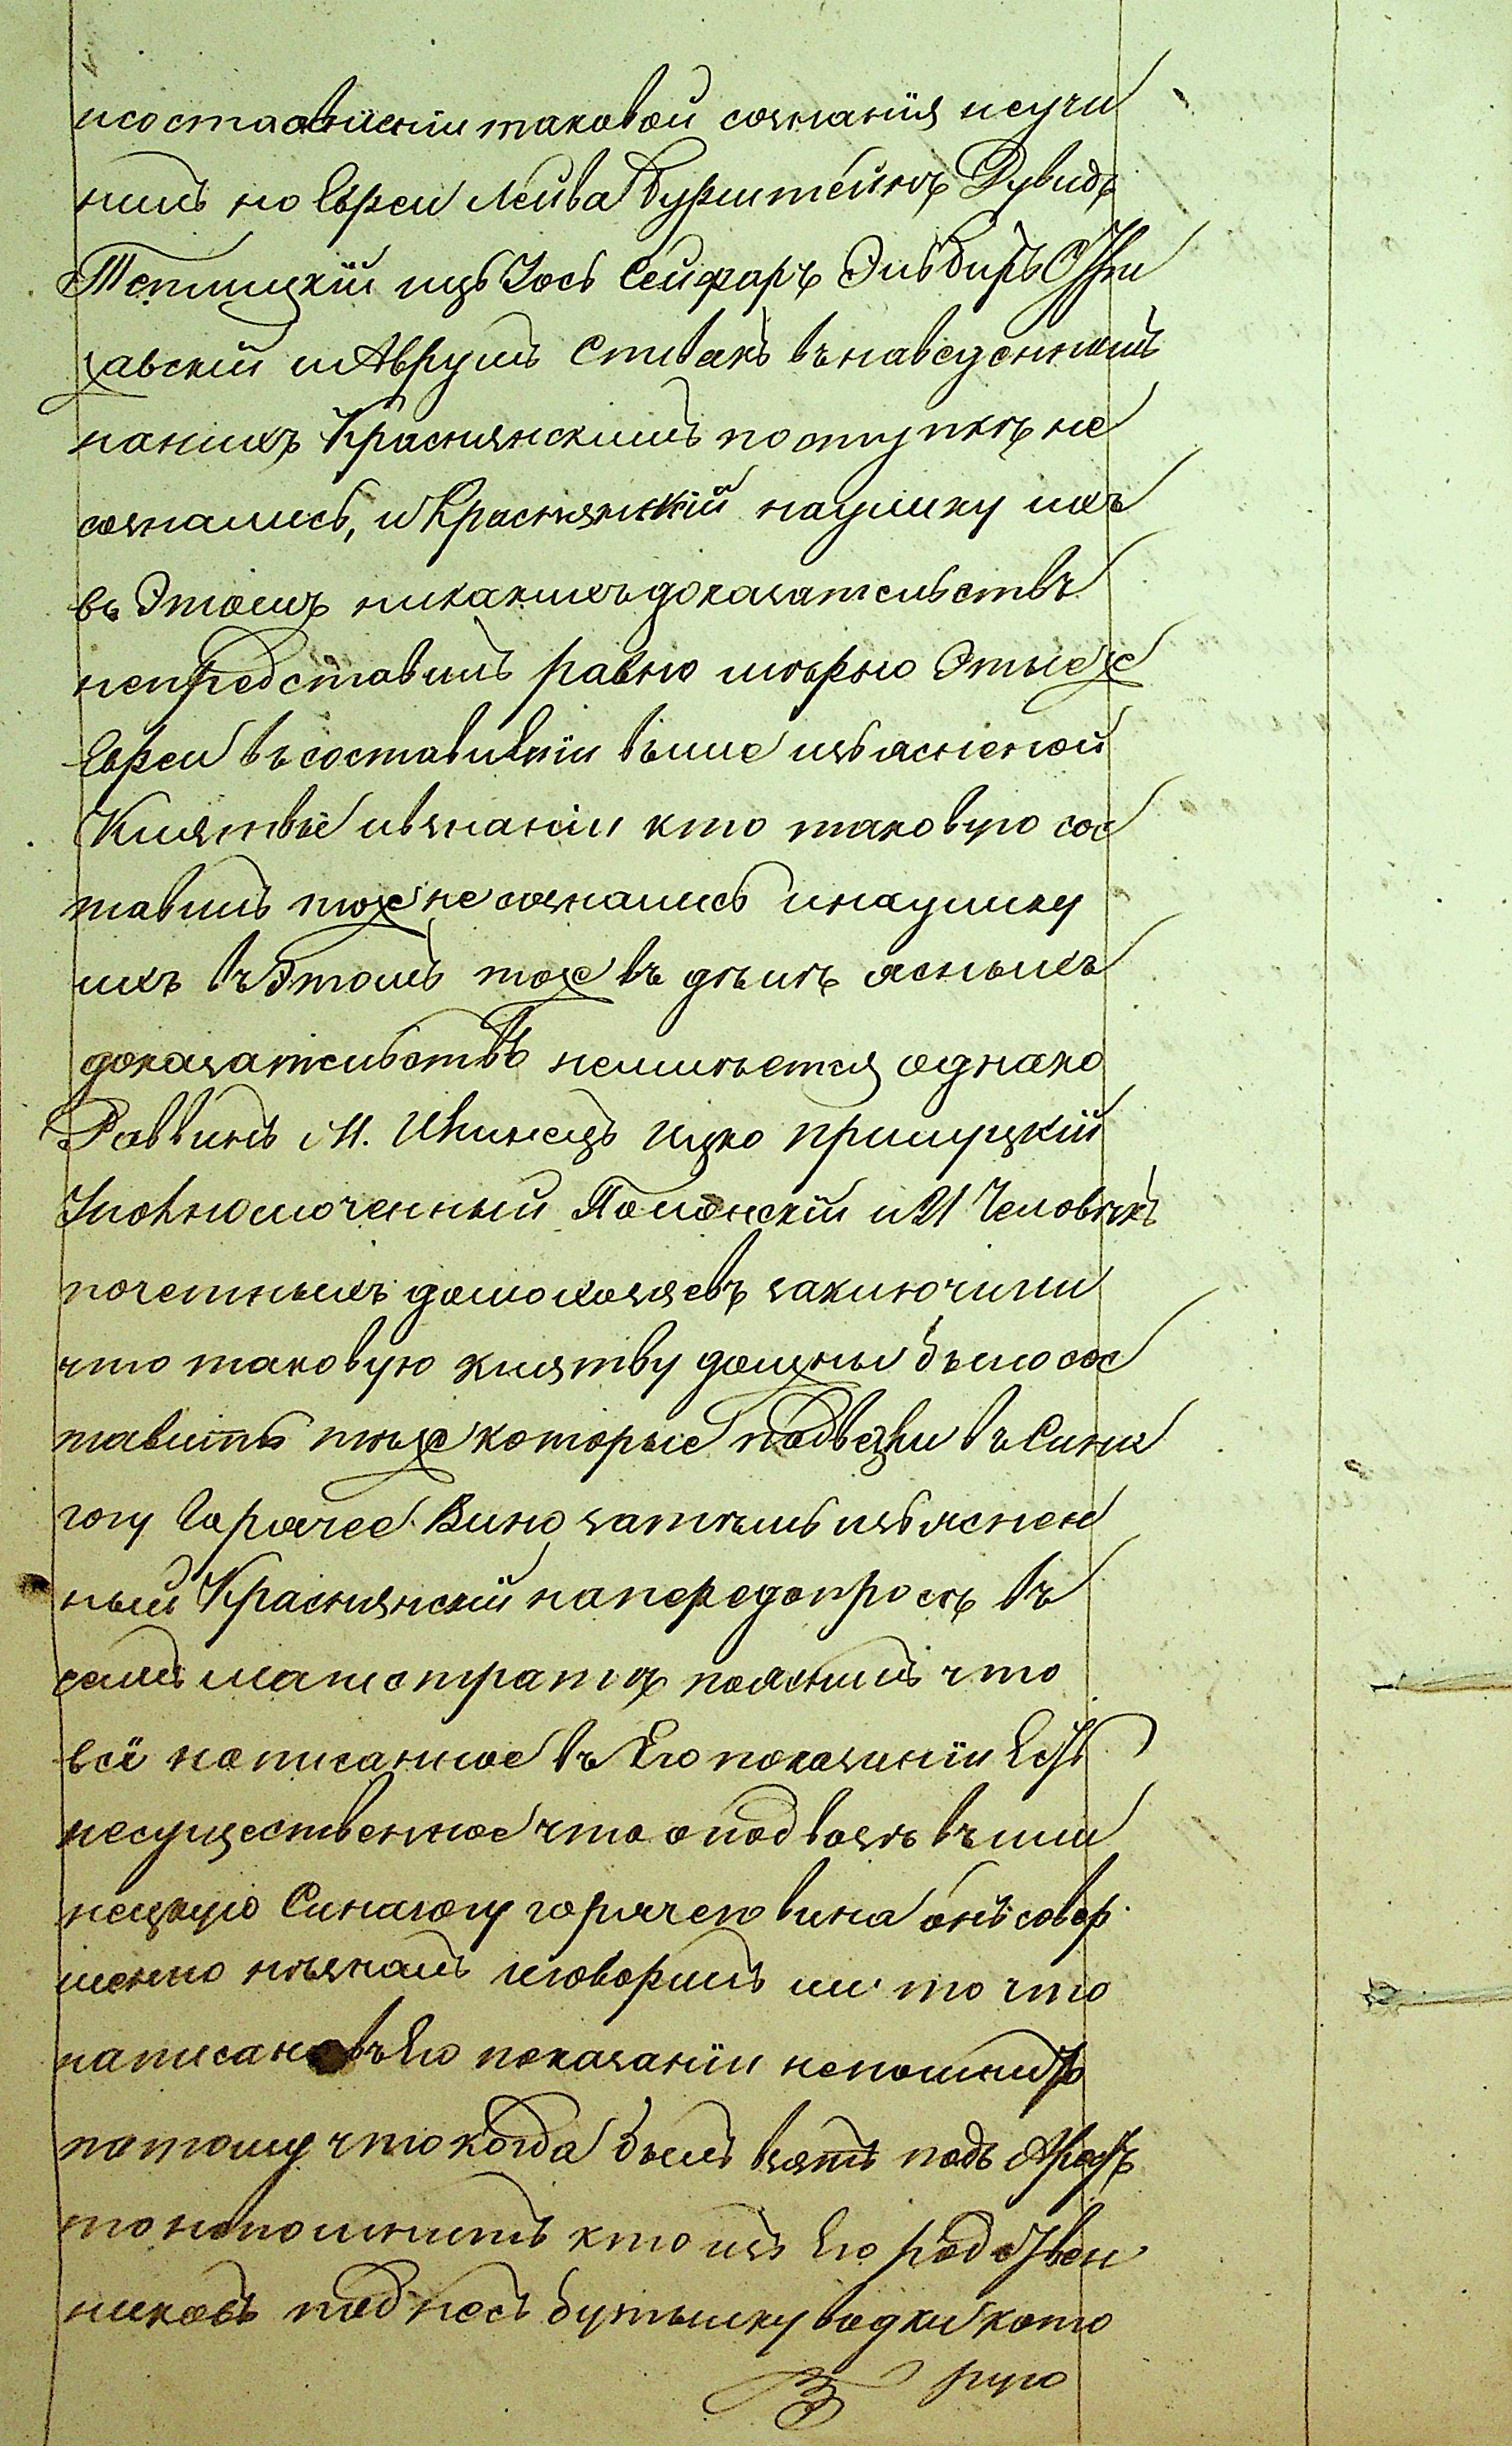 исоставленіи таковой сознанія неучи
нилъ но Евреи Лейва Бурштейнъ Дувидъ
Теплицкій ицъ Іось Сейферъ Эльбиръ
хавскій и Аврумъ Спивакъ въ наведенномъ
нанихъ Краснянскимъ поступкѣ не
сознались, и Краснянскій наулику ихъ
въ Этомъ никакихъ доказательствъ
непредставилъ равно мѣрно Этыеже
Евреи въ составленіи выше изъясненой
Клятвы изнаніи кто таковую сос
тавилъ тоже не сознались инаулику
ихъ въ Этомъ тоже въ дѣлѣ ясныхъ
доказательствъ неимѣется однако
Раввинъ М. Ильинецъ Ицко Прилуцкій
Уполномоченный Полонскій и 21 Человѣкъ
почетныхъ домохозяевъ заключили
что таковую клятву должны было сос
тавить тѣже которые подвезли въ Сина
гогу Горячее Вино затѣмъ изъяснен
ный Краснянскій напередопросѣ въ
семъ магистратѣ пояснилъ что
всё написанное въ Его показаніи Есть
несущественное что о подвозѣ въ или
нецкую Синагогу горячего вина онъ совер
шенно незналъ иговорилъ ли то что
написано въ Его показаніи непомнитъ
потому что когда былъ взятъ подъ Арестъ
то непомнитъ кто изъ Его родствен
никовъ поднесъ бутылку водки кото
рую